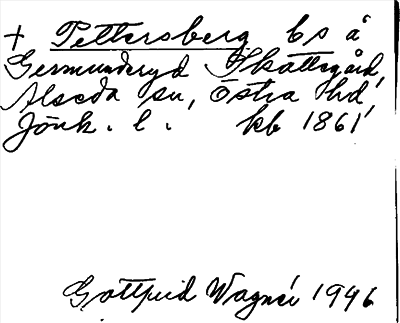 + Pettersberg bs å
Germunderyd Skattegård,
Alseda sn, Östra hd,
Jönk. l. kb 1861
Gottfrid Wagnér 1946